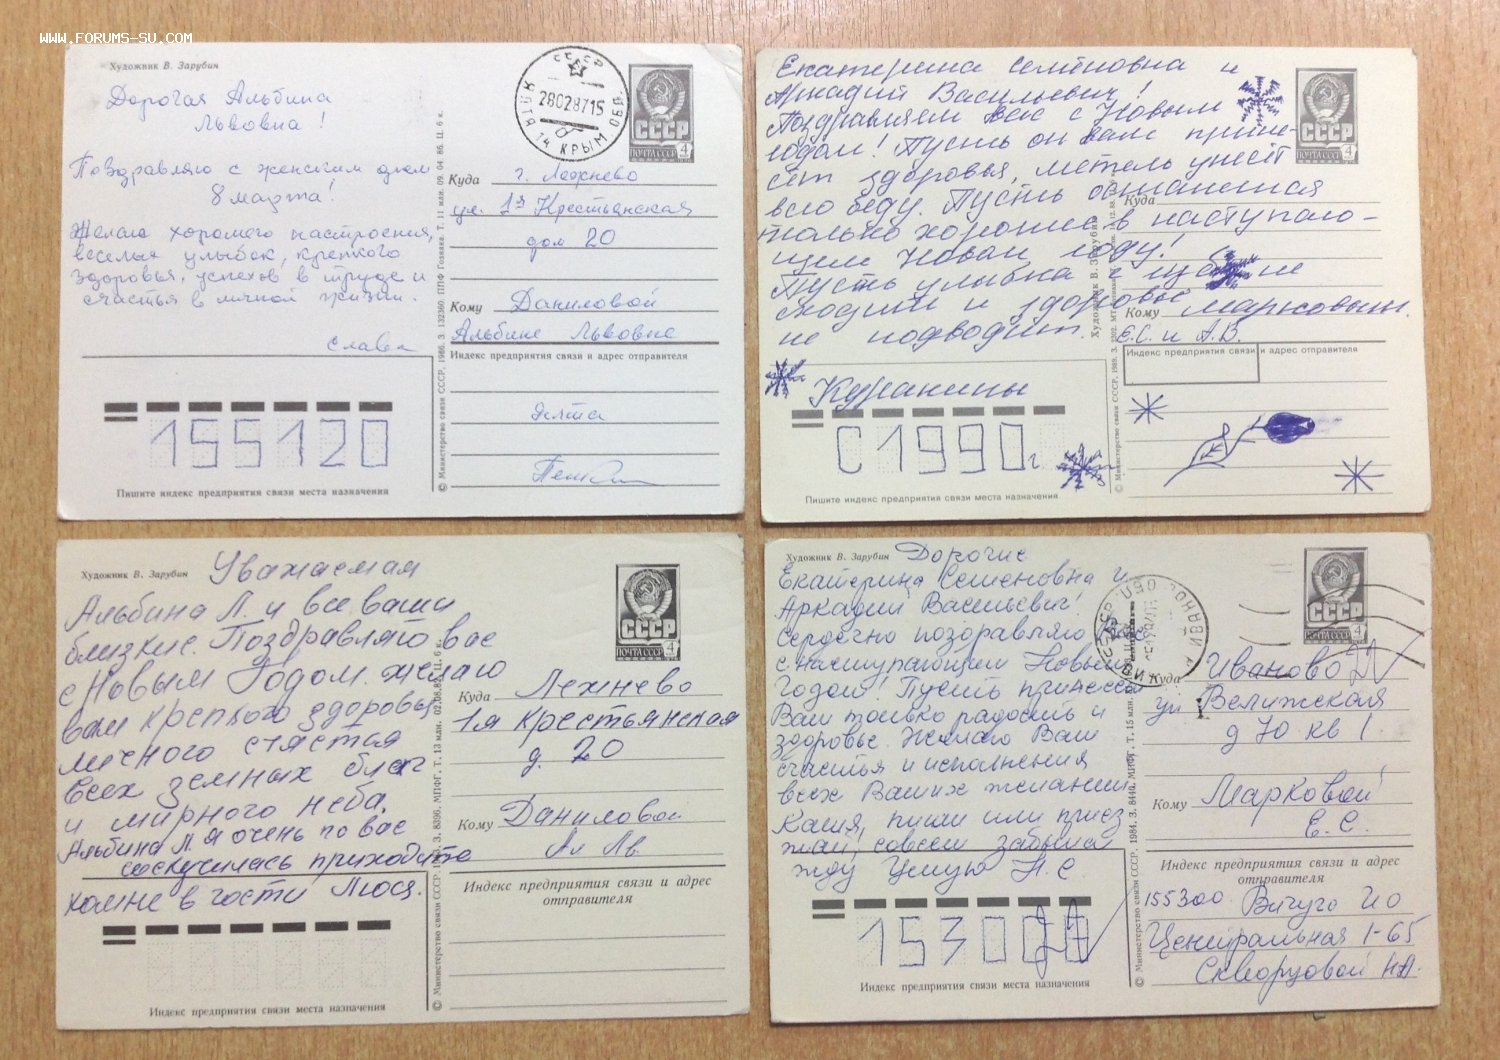 WWW.FORUMS-SU.COM
Художник В. Зарубин
Дорогая Альбина
Львовна!
Поздравляю с женским днем
8 марта!
Желаю хорошего настроения,
веселых улыбок, крепкого
здоровья, успехов в труде и
счастья в личной жизни.
Слава
155120
Пишите индекс предприятия связи места назначения
© Министерство связи СССР. 1986. З. 132360. ППФ Гознака. Т. 11 млн. 09. 04. 86. Ц. 6 к.
СССР
28028715
ЯЛТА 14 КРЫМ ОБЛ.
СССР
ПОЧТА СССР 4
Куда г. Лежнево
ул. 1я Крестьянская
дом 20
Кому Даниловой
Альбине Львовне
Индекс предприятия связи и адрес отправителя
Ялта
Екатерина Семёновна и
Аркадий Васильевич!
Поздравляем вас с Новым
годом! Пусть он вам прине-
сёт здоровья, метель унесёт
всю беду. Пусть останется
только хорошее в наступаю-
щем Новом году!
Пусть улыбка с уст не
сходит и здоровье
не подводит.
Куранины
С 1990г
Пишите индекс предприятия связи места назначения
© Министерство связи СССР. 1989.
Художник В. Зарубин
СССР
ПОЧТА СССР 4
Куда
Кому Марковым.
Е.С. и А.В.
Индекс предприятия связи и адрес отправителя
Художник В. Зарубин
Уважаемая
Альбина Л. и все ваши
близкие. Поздравляю вас
с Новым Годом. желаю
вам крепкого здоровья
личного счастья
всех земных благ
и мирного неба.
Альбина Л. я очень по вас
соскучилась приходите
комне в гости Люся.
Индекс предприятия связи места назначения
© Министерство связи СССР З. 8396. МПФГ. Т. 13 млн. 02.08.82 Ц. 6 к.
СССР
ПОЧТА СССР 4
Куда Лежнево
1ая Крестьянская
д. 20
Кому Даниловой
Ал Лв
Индекс предприятия связи и адрес
отправителя
Художник В. Зарубин
Дорогие
Екатерина Семеновна и
Аркадий Васильевич!
Сердечно поздравляю Вас
с наступающим Новым
Годом! Пусть принесет
Вам только радость и
здоровье. Желаю Вам
счастья и исполнения
всех Ваших желаний
Катя, пиши или приез
жай, совсем забыла
жду Целую Н.С
153000
Индекс предприятия связи места назначения
© Министерство связи СССР. 1984. З. 8440. МПФГ. Т. 15 млн.
СССР
ПОЧТА СССР 4
Куда Иваново
ул Велижская
д 70 кв 1
Кому Марковой
Е.С.
Индекс предприятия связи и адрес
отправителя
155300 Вичуга ИО
Центральная 1-65
Скворцовой Н.А.